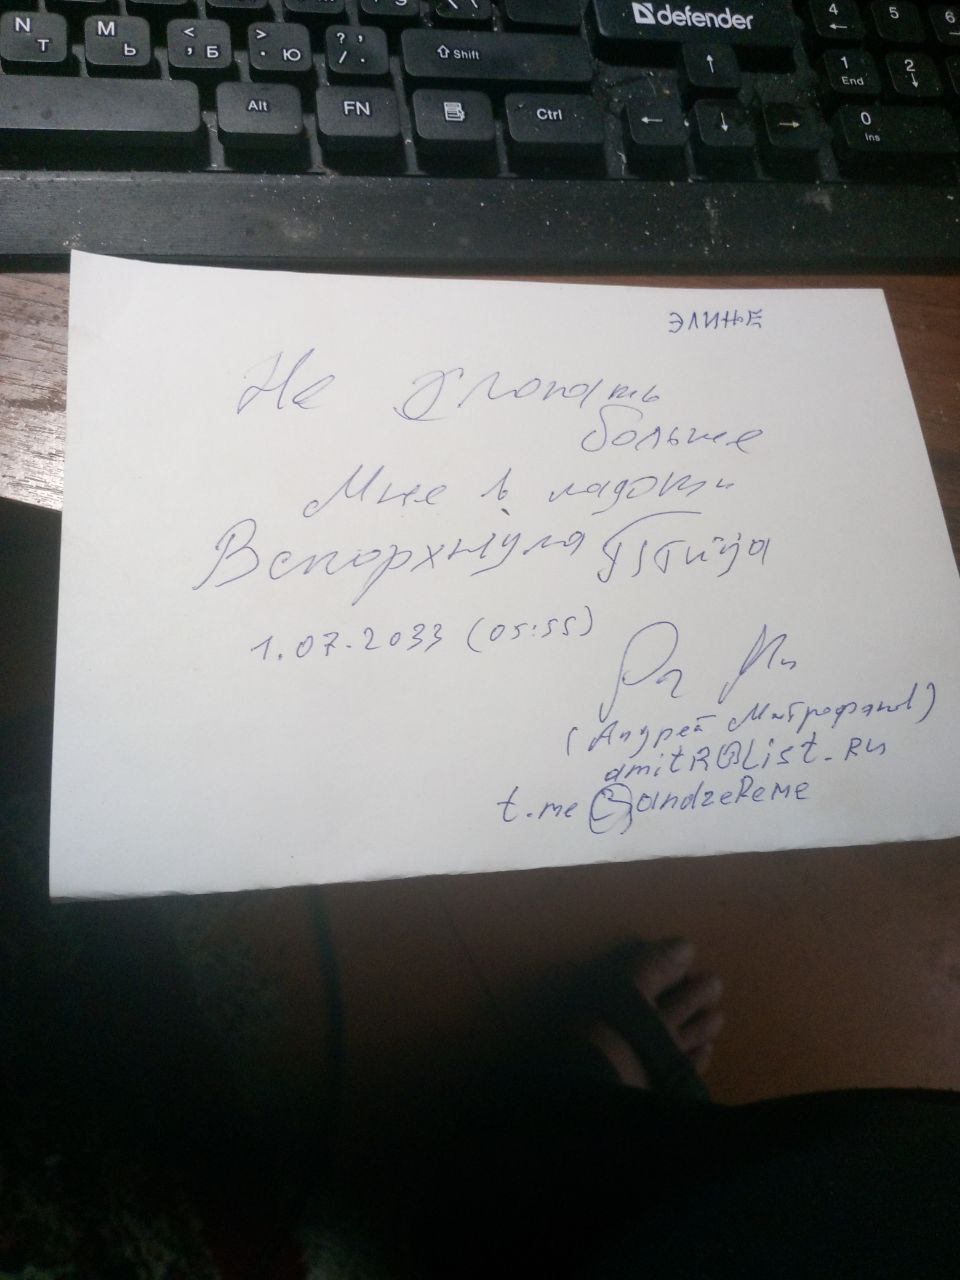 N Т
М Ь
< , Б
> . Ю
? , / .
Shift
defender
4
5
6
1 End
2
Alt
FN
Ctrl
0 Ins
ЭЛИНЕ
Не хлопать
больше
Мне в ладоши
Вспорхнула Птица
1.07.2033 (05:55)
(Андрей Митрофанов)
amitR@List.Ru
t.me @andzeReMe